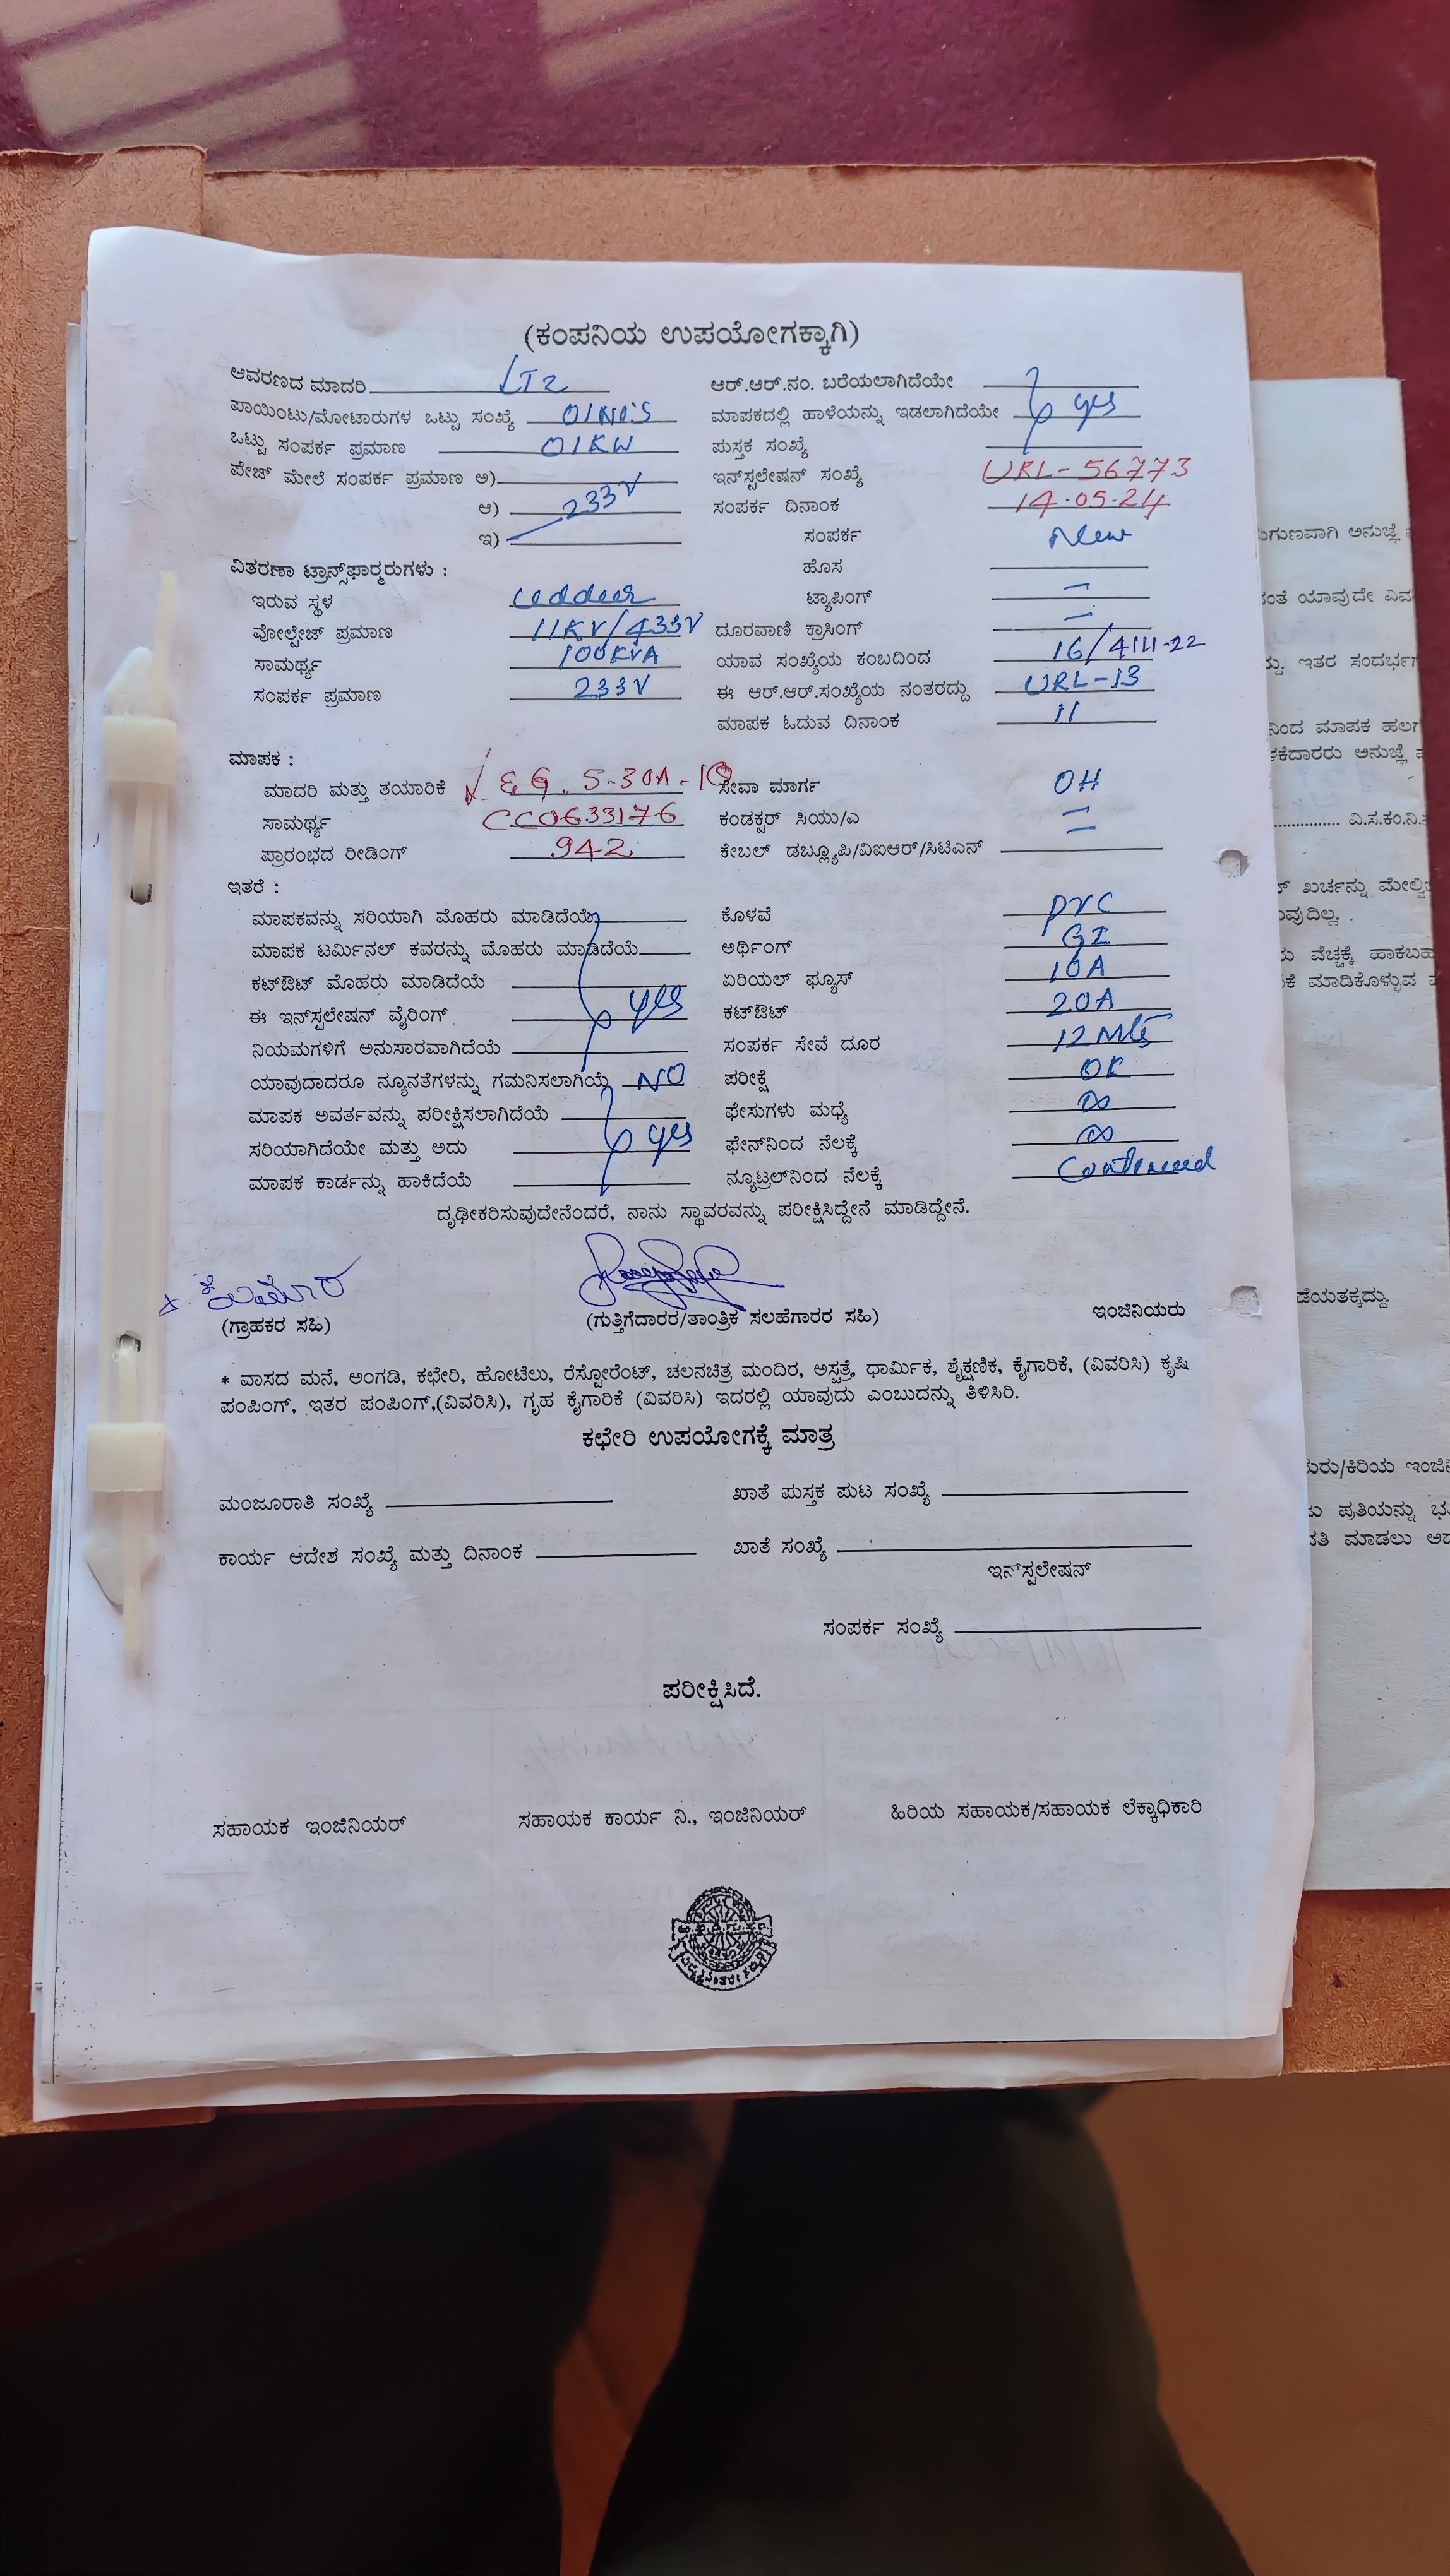 (ಕಂಪನಿಯ ಉಪಯೋಗಕ್ಕಾಗಿ)
ಆವರಣದ ಮಾದರಿ LT2
ಪಾಯಿಂಟು/ಮೋಟಾರುಗಳ ಒಟ್ಟು ಸಂಖ್ಯೆ 01NO'S
ಒಟ್ಟು ಸಂಪರ್ಕ ಪ್ರಮಾಣ 01KW
ಪೇಜ್ ಮೇಲೆ ಸಂಪರ್ಕ ಪ್ರಮಾಣ ಅ)
ಆ) 233V
ಇ)
ವಿತರಣಾ ಟ್ರಾನ್ಸ್‌ಫಾರ್‍ಮರುಗಳು :
ಇರುವ ಸ್ಥಳ
ವೋಲ್ಟೇಜ್ ಪ್ರಮಾಣ 11KV/433V
ಸಾಮರ್ಥ್ಯ 100KVA
ಸಂಪರ್ಕ ಪ್ರಮಾಣ 233V
ಆರ್.ಆರ್.ನಂ. ಬರೆಯಲಾಗಿದೆಯೇ
ಮಾಪಕದಲ್ಲಿ ಹಾಳೆಯನ್ನು ಇಡಲಾಗಿದೆಯೇ yes
ಪುಸ್ತಕ ಸಂಖ್ಯೆ
ಇನ್‌ಸ್ಪಲೇಷನ್ ಸಂಖ್ಯೆ URL-56773
ಸಂಪರ್ಕ ದಿನಾಂಕ 14.05.24
ಸಂಪರ್ಕ New
ಹೊಸ
ಟ್ಯಾಪಿಂಗ್ —
ದೂರವಾಣಿ ಕ್ರಾಸಿಂಗ್ —
ಯಾವ ಸಂಖ್ಯೆಯ ಕಂಬದಿಂದ
ಈ ಆರ್.ಆರ್.ಸಂಖ್ಯೆಯ ನಂತರದ್ದು URL-13
ಮಾಪಕ ಓದುವ ದಿನಾಂಕ 11
ಮಾಪಕ :
ಮಾದರಿ ಮತ್ತು ತಯಾರಿಕೆ 5-30A
ಸಾಮರ್ಥ್ಯ CC0633176
ಪ್ರಾರಂಭದ ರೀಡಿಂಗ್ 942
ಸೇವಾ ಮಾರ್ಗ OH
ಕಂಡಕ್ಟರ್ ಸಿಯು/ಎ —
ಕೇಬಲ್ ಡಬ್ಲ್ಯೂಪಿ/ವಿಐಆರ್/ಸಿಟಿಎನ್ —
ಇತರೆ :
ಮಾಪಕವನ್ನು ಸರಿಯಾಗಿ ಮೊಹರು ಮಾಡಿದೆಯೆ
ಮಾಪಕ ಟರ್ಮಿನಲ್ ಕವರನ್ನು ಮೊಹರು ಮಾಡಿದೆಯೆ
ಕಟ್‌ಔಟ್ ಮೊಹರು ಮಾಡಿದೆಯೆ
ಈ ಇನ್‌ಸ್ಪಲೇಷನ್ ವೈರಿಂಗ್ yes
ನಿಯಮಗಳಿಗೆ ಅನುಸಾರವಾಗಿದೆಯೆ
ಯಾವುದಾದರೂ ನ್ಯೂನತೆಗಳನ್ನು ಗಮನಿಸಲಾಗಿಯೆ NO
ಮಾಪಕ ಅವರ್ತವನ್ನು ಪರೀಕ್ಷಿಸಲಾಗಿದೆಯೆ
ಸರಿಯಾಗಿದೆಯೇ ಮತ್ತು ಅದು yes
ಮಾಪಕ ಕಾರ್ಡನ್ನು ಹಾಕಿದೆಯೆ
ಕೊಳವೆ PVC
ಅರ್ಥಿಂಗ್ GI
ಏರಿಯಲ್ ಫ್ಯೂಸ್ 10A
ಕಟ್‌ಔಟ್ 20A
ಸಂಪರ್ಕ ಸೇವೆ ದೂರ 12 Mts
ಪರೀಕ್ಷೆ OK
ಫೇಸುಗಳು ಮಧ್ಯೆ ∞
ಫೇನ್‌ನಿಂದ ನೆಲಕ್ಕೆ ∞
ನ್ಯೂಟ್ರಲ್‌ನಿಂದ ನೆಲಕ್ಕೆ
ದೃಢೀಕರಿಸುವುದೇನೆಂದರೆ, ನಾನು ಸ್ಥಾವರವನ್ನು ಪರೀಕ್ಷಿಸಿದ್ದೇನೆ ಮಾಡಿದ್ದೇನೆ.
(ಗ್ರಾಹಕರ ಸಹಿ)
(ಗುತ್ತಿಗೆದಾರರ/ತಾಂತ್ರಿಕ ಸಲಹೆಗಾರರ ಸಹಿ)
ಇಂಜಿನಿಯರು
* ವಾಸದ ಮನೆ, ಅಂಗಡಿ, ಕಛೇರಿ, ಹೋಟೆಲು, ರೆಸ್ಟೋರೆಂಟ್, ಚಲನಚಿತ್ರ ಮಂದಿರ, ಅಸ್ಪತ್ರೆ, ಧಾರ್ಮಿಕ, ಶೈಕ್ಷಣಿಕ, ಕೈಗಾರಿಕೆ, (ವಿವರಿಸಿ) ಕೃಷಿ
ಪಂಪಿಂಗ್, ಇತರ ಪಂಪಿಂಗ್,(ವಿವರಿಸಿ), ಗೃಹ ಕೈಗಾರಿಕೆ (ವಿವರಿಸಿ) ಇದರಲ್ಲಿ ಯಾವುದು ಎಂಬುದನ್ನು ತಿಳಿಸಿರಿ.
ಕಛೇರಿ ಉಪಯೋಗಕ್ಕೆ ಮಾತ್ರ
ಮಂಜೂರಾತಿ ಸಂಖ್ಯೆ
ಖಾತೆ ಪುಸ್ತಕ ಪುಟ ಸಂಖ್ಯೆ
ಕಾರ್ಯ ಆದೇಶ ಸಂಖ್ಯೆ ಮತ್ತು ದಿನಾಂಕ
ಖಾತೆ ಸಂಖ್ಯೆ
ಇನ್‌ಸ್ಪಲೇಷನ್
ಸಂಪರ್ಕ ಸಂಖ್ಯೆ
ಪರೀಕ್ಷಿಸಿದೆ.
ಸಹಾಯಕ ಇಂಜಿನಿಯರ್
ಸಹಾಯಕ ಕಾರ್ಯ ನಿ., ಇಂಜಿನಿಯರ್
ಹಿರಿಯ ಸಹಾಯಕ/ಸಹಾಯಕ ಲೆಕ್ಕಾಧಿಕಾರಿ